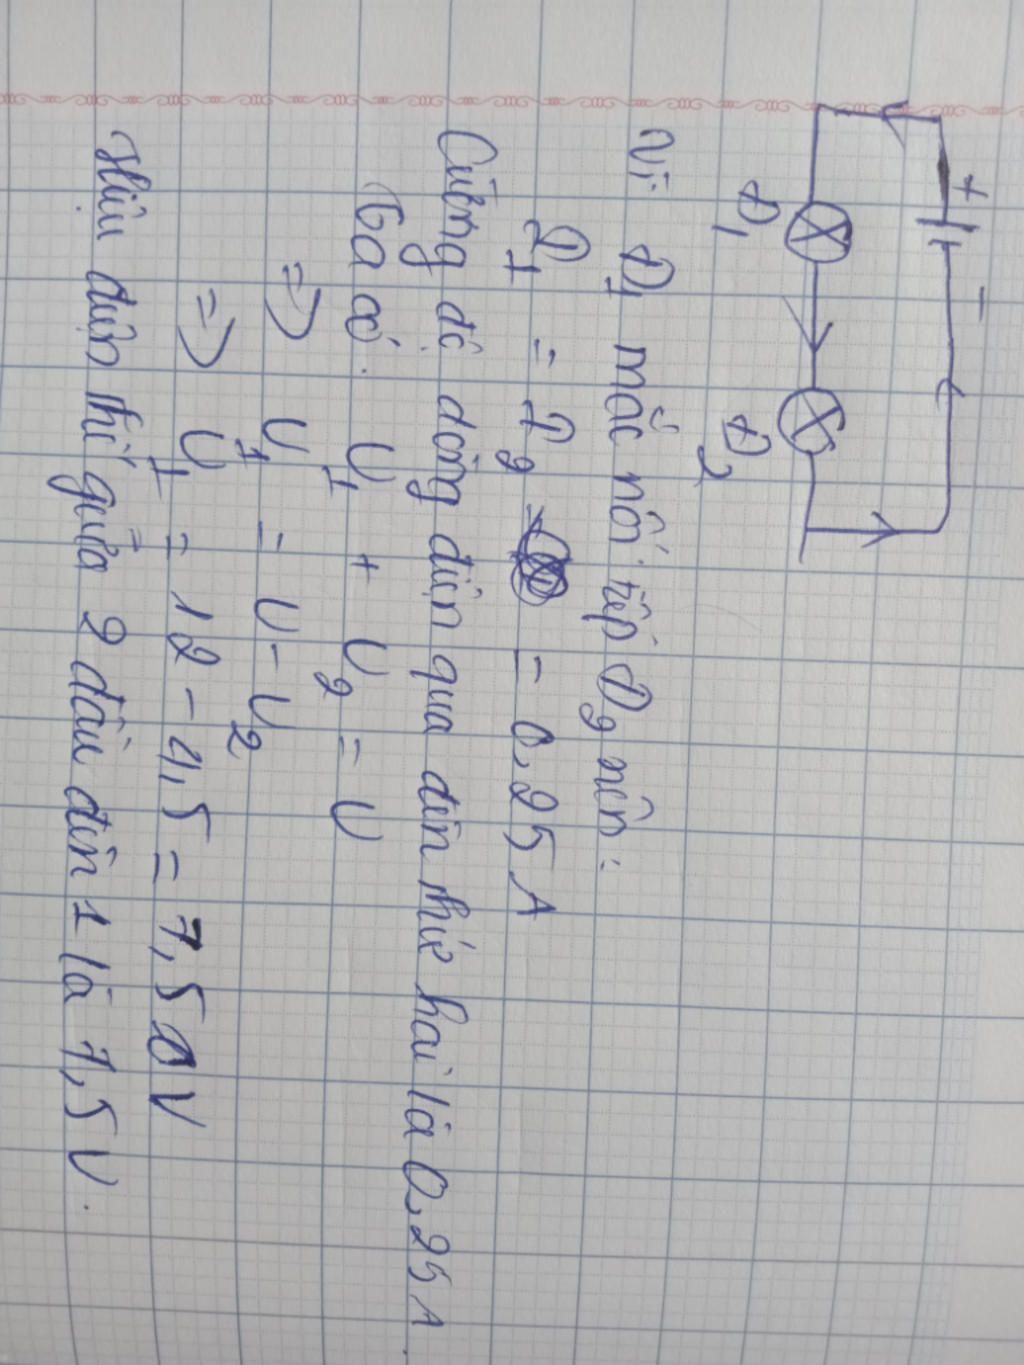 + -
Đ1 Đ2
Vì Đ1 mắc nối tiếp Đ2 nên:
I1 = I2 = 0,25 A
Cường độ dòng điện qua đèn thứ hai là 0,25 A.
Ta có: U1 + U2 = U
=> U1 = U - U2
=> U1 = 12 - 4,5 = 7,5 V
Hiệu điện thế giữa 2 đầu đèn 1 là 7,5 V.